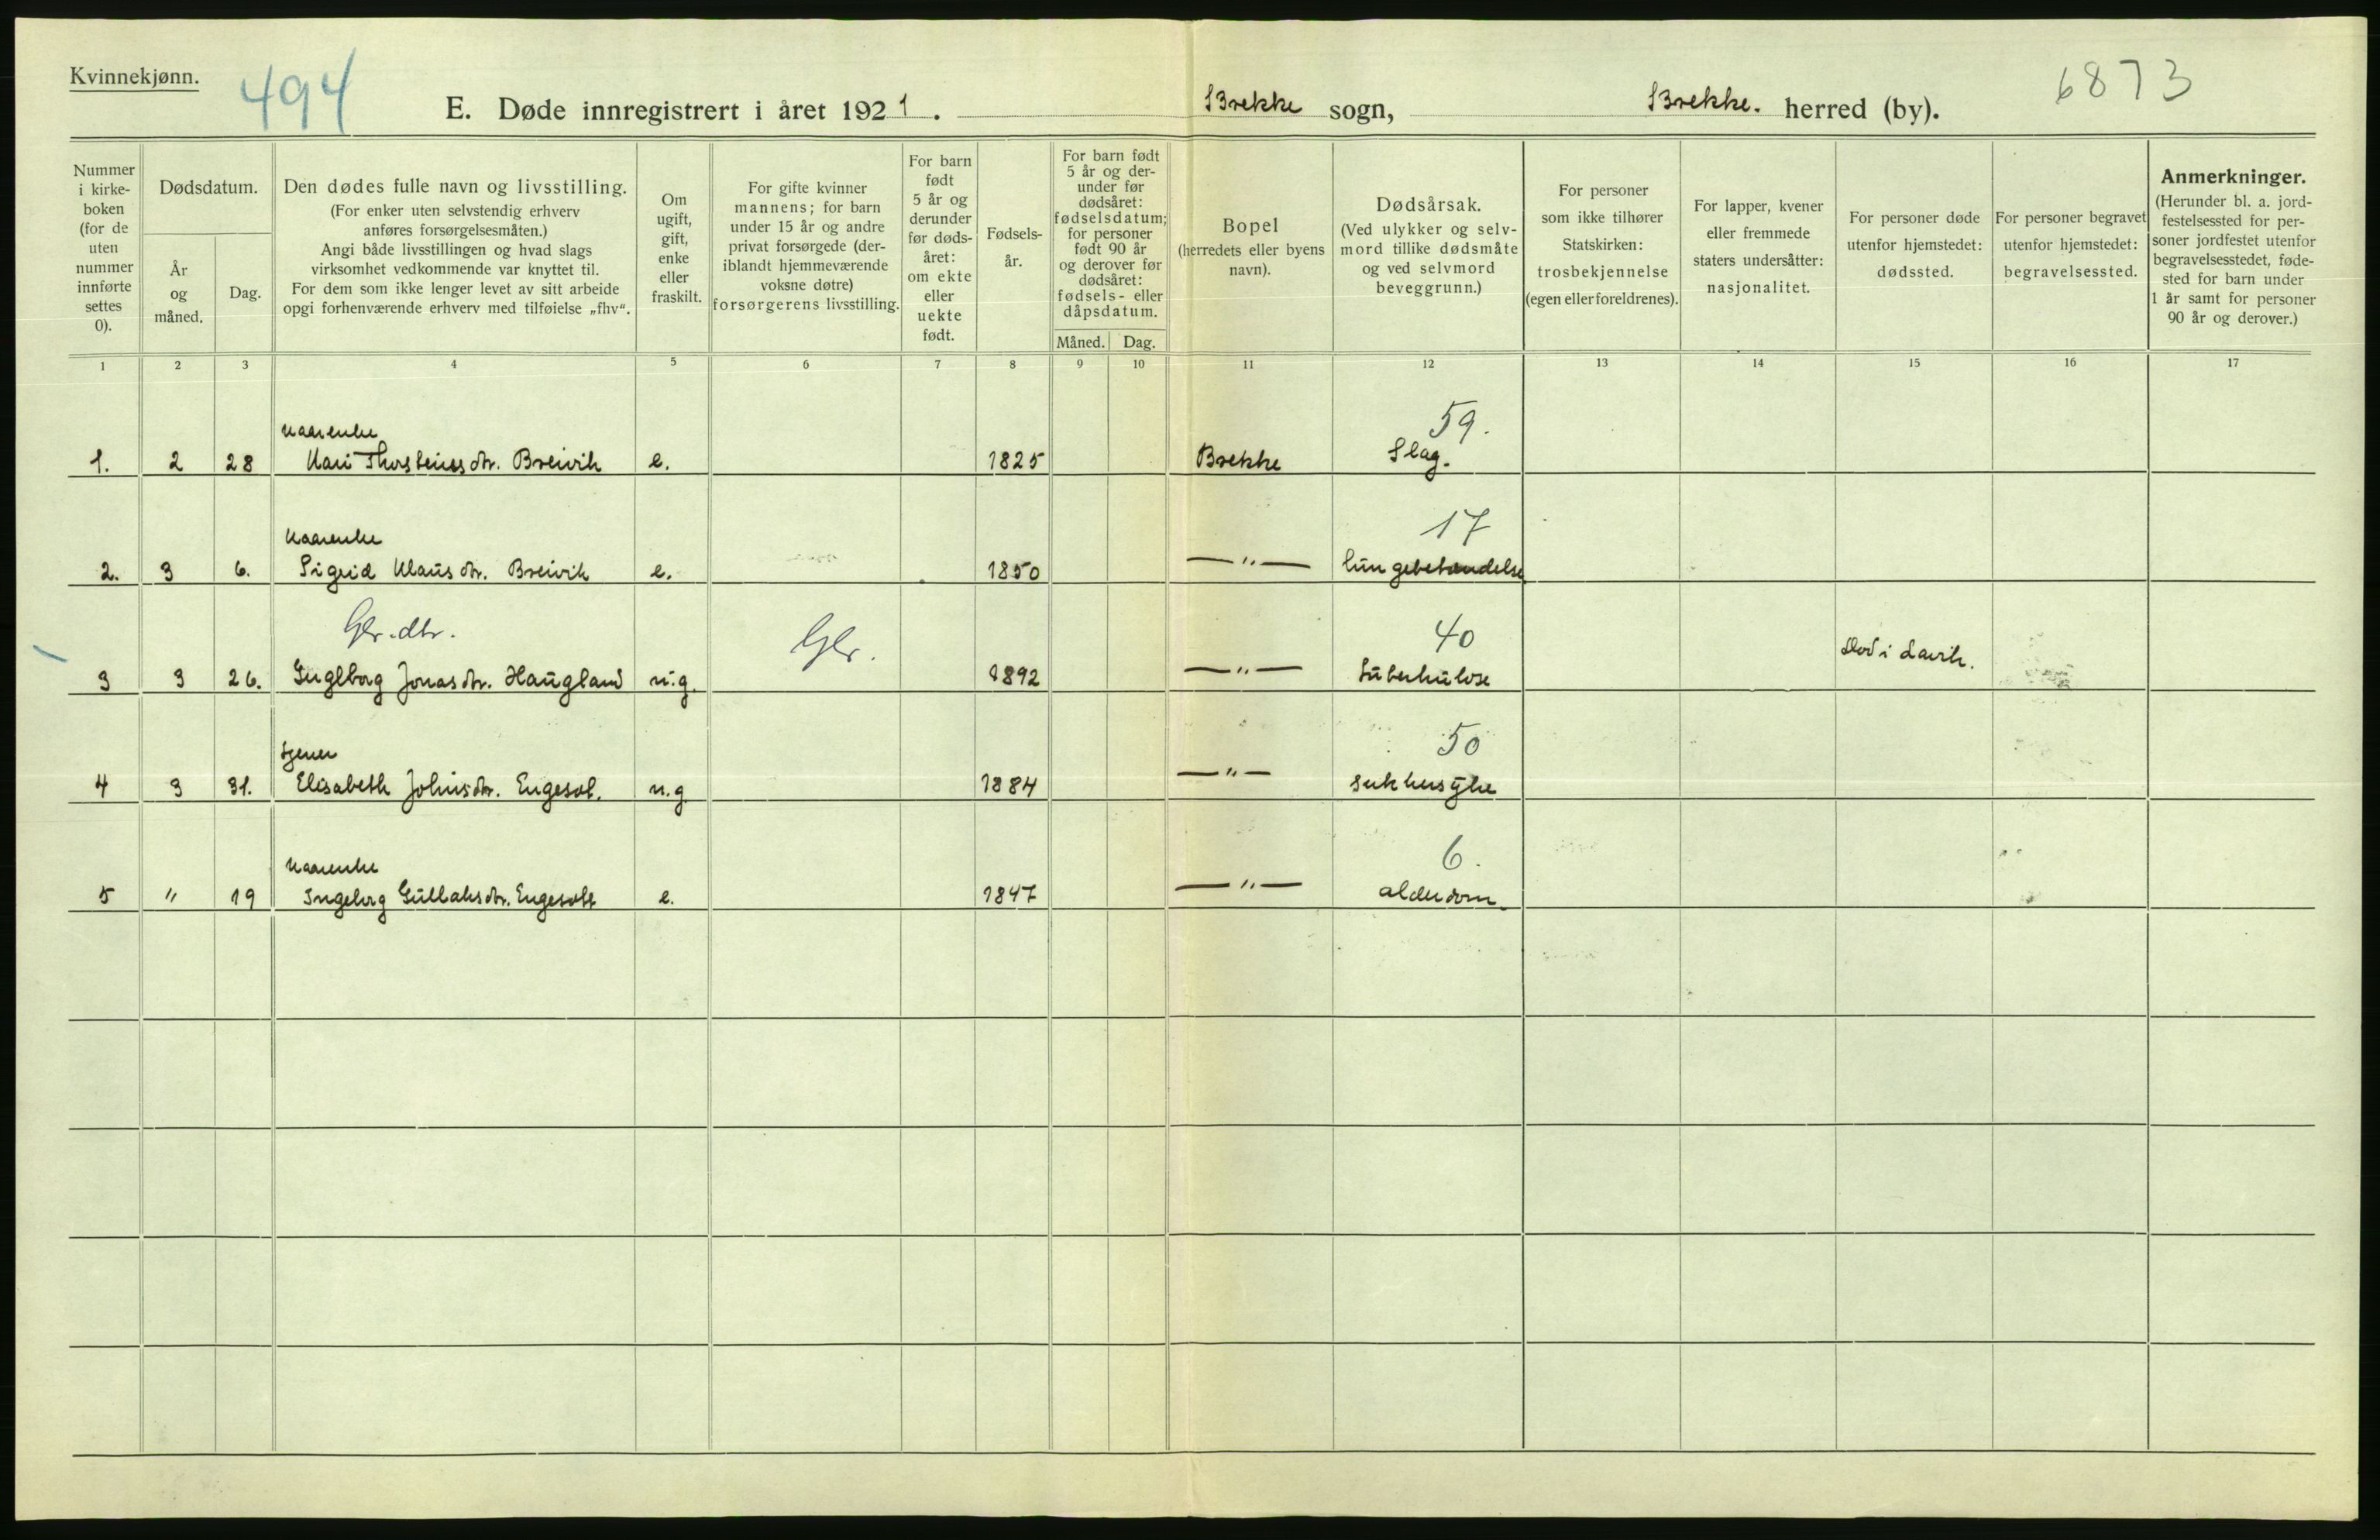 Kvinnekjønn.
494
6873
E. Døde innregistrert i året 1921. Brekke sogn, Brekke. herred (by).
Nummer i kirkeboken (for de uten nummer innførte settes 0).
Dødsdatum.
År og måned.
Dag.
Den dødes fulle navn og livsstilling.
(For enker uten selvstendig erhverv
anføres forsørgelsesmåten.)
Angi både livsstillingen og hvad slags
virksomhet vedkommende var knyttet til.
For dem som ikke lenger levet av sitt arbeide
opgi forhenværende erhverv med tilføielse „fhv“.
Om
ugift,
gift,
enke
eller
fraskilt.
For gifte kvinner
mannens; for barn
under 15 år og andre
privat forsørgede (der-
iblandt hjemmeværende
voksne døtre)
forsørgerens livsstilling.
For barn
født
5 år og
derunder
før døds-
året:
om ekte
eller
uekte
født.
Fødsels-
år.
For barn født
5 år og der-
under før
dødsåret:
fødselsdatum;
for personer
født 90 år
og derover før
dødsåret:
fødsels- eller
dåpsdatum.
Måned. Dag.
Bopel
(herredets eller byens
navn).
Dødsårsak.
(Ved ulykker og selv-
mord tillike dødsmåte
og ved selvmord
beveggrunn.)
For personer
som ikke tilhører
Statskirken:
trosbekjennelse
(egen eller foreldrenes).
For lapper, kvener
eller fremmede
staters undersåtter:
nasjonalitet.
For personer døde
utenfor hjemstedet:
dødssted.
For personer begravet
utenfor hjemstedet:
begravelsessted.
Anmerkninger.
(Herunder bl. a. jord-
festelsessted for per-
soner jordfestet utenfor
begravelsesstedet, føde-
sted for barn under
1 år samt for personer
90 år og derover.)
1 2 3 4 5 6 7 8 9 10 11 12 13 14 15 16 17
Kaarenke 59.
1. 2 28 Kari Thorsteinsdtr. Breivik e. 1825 Brekke Slag.
Kaarenke 17
2. 3 6. Sigrid Klausdtr. Breivik e. 1850 —"— lungebetændelse
Gbr. dtr. Gbr. 40
3 3 26. Inglborg Jonasdtr. Haugland u.g. 1892 —"— tuberkulose Död i Lavik.
tjener 50
4 3 31. Elisabeth Johnsdtr. Engesæt. u.g. 1884 —"— sukkersyke
Kaarenke 6.
5 " 19 Ingeborg Gullaksdtr. Engesæt e. 1847 —"— alderdom